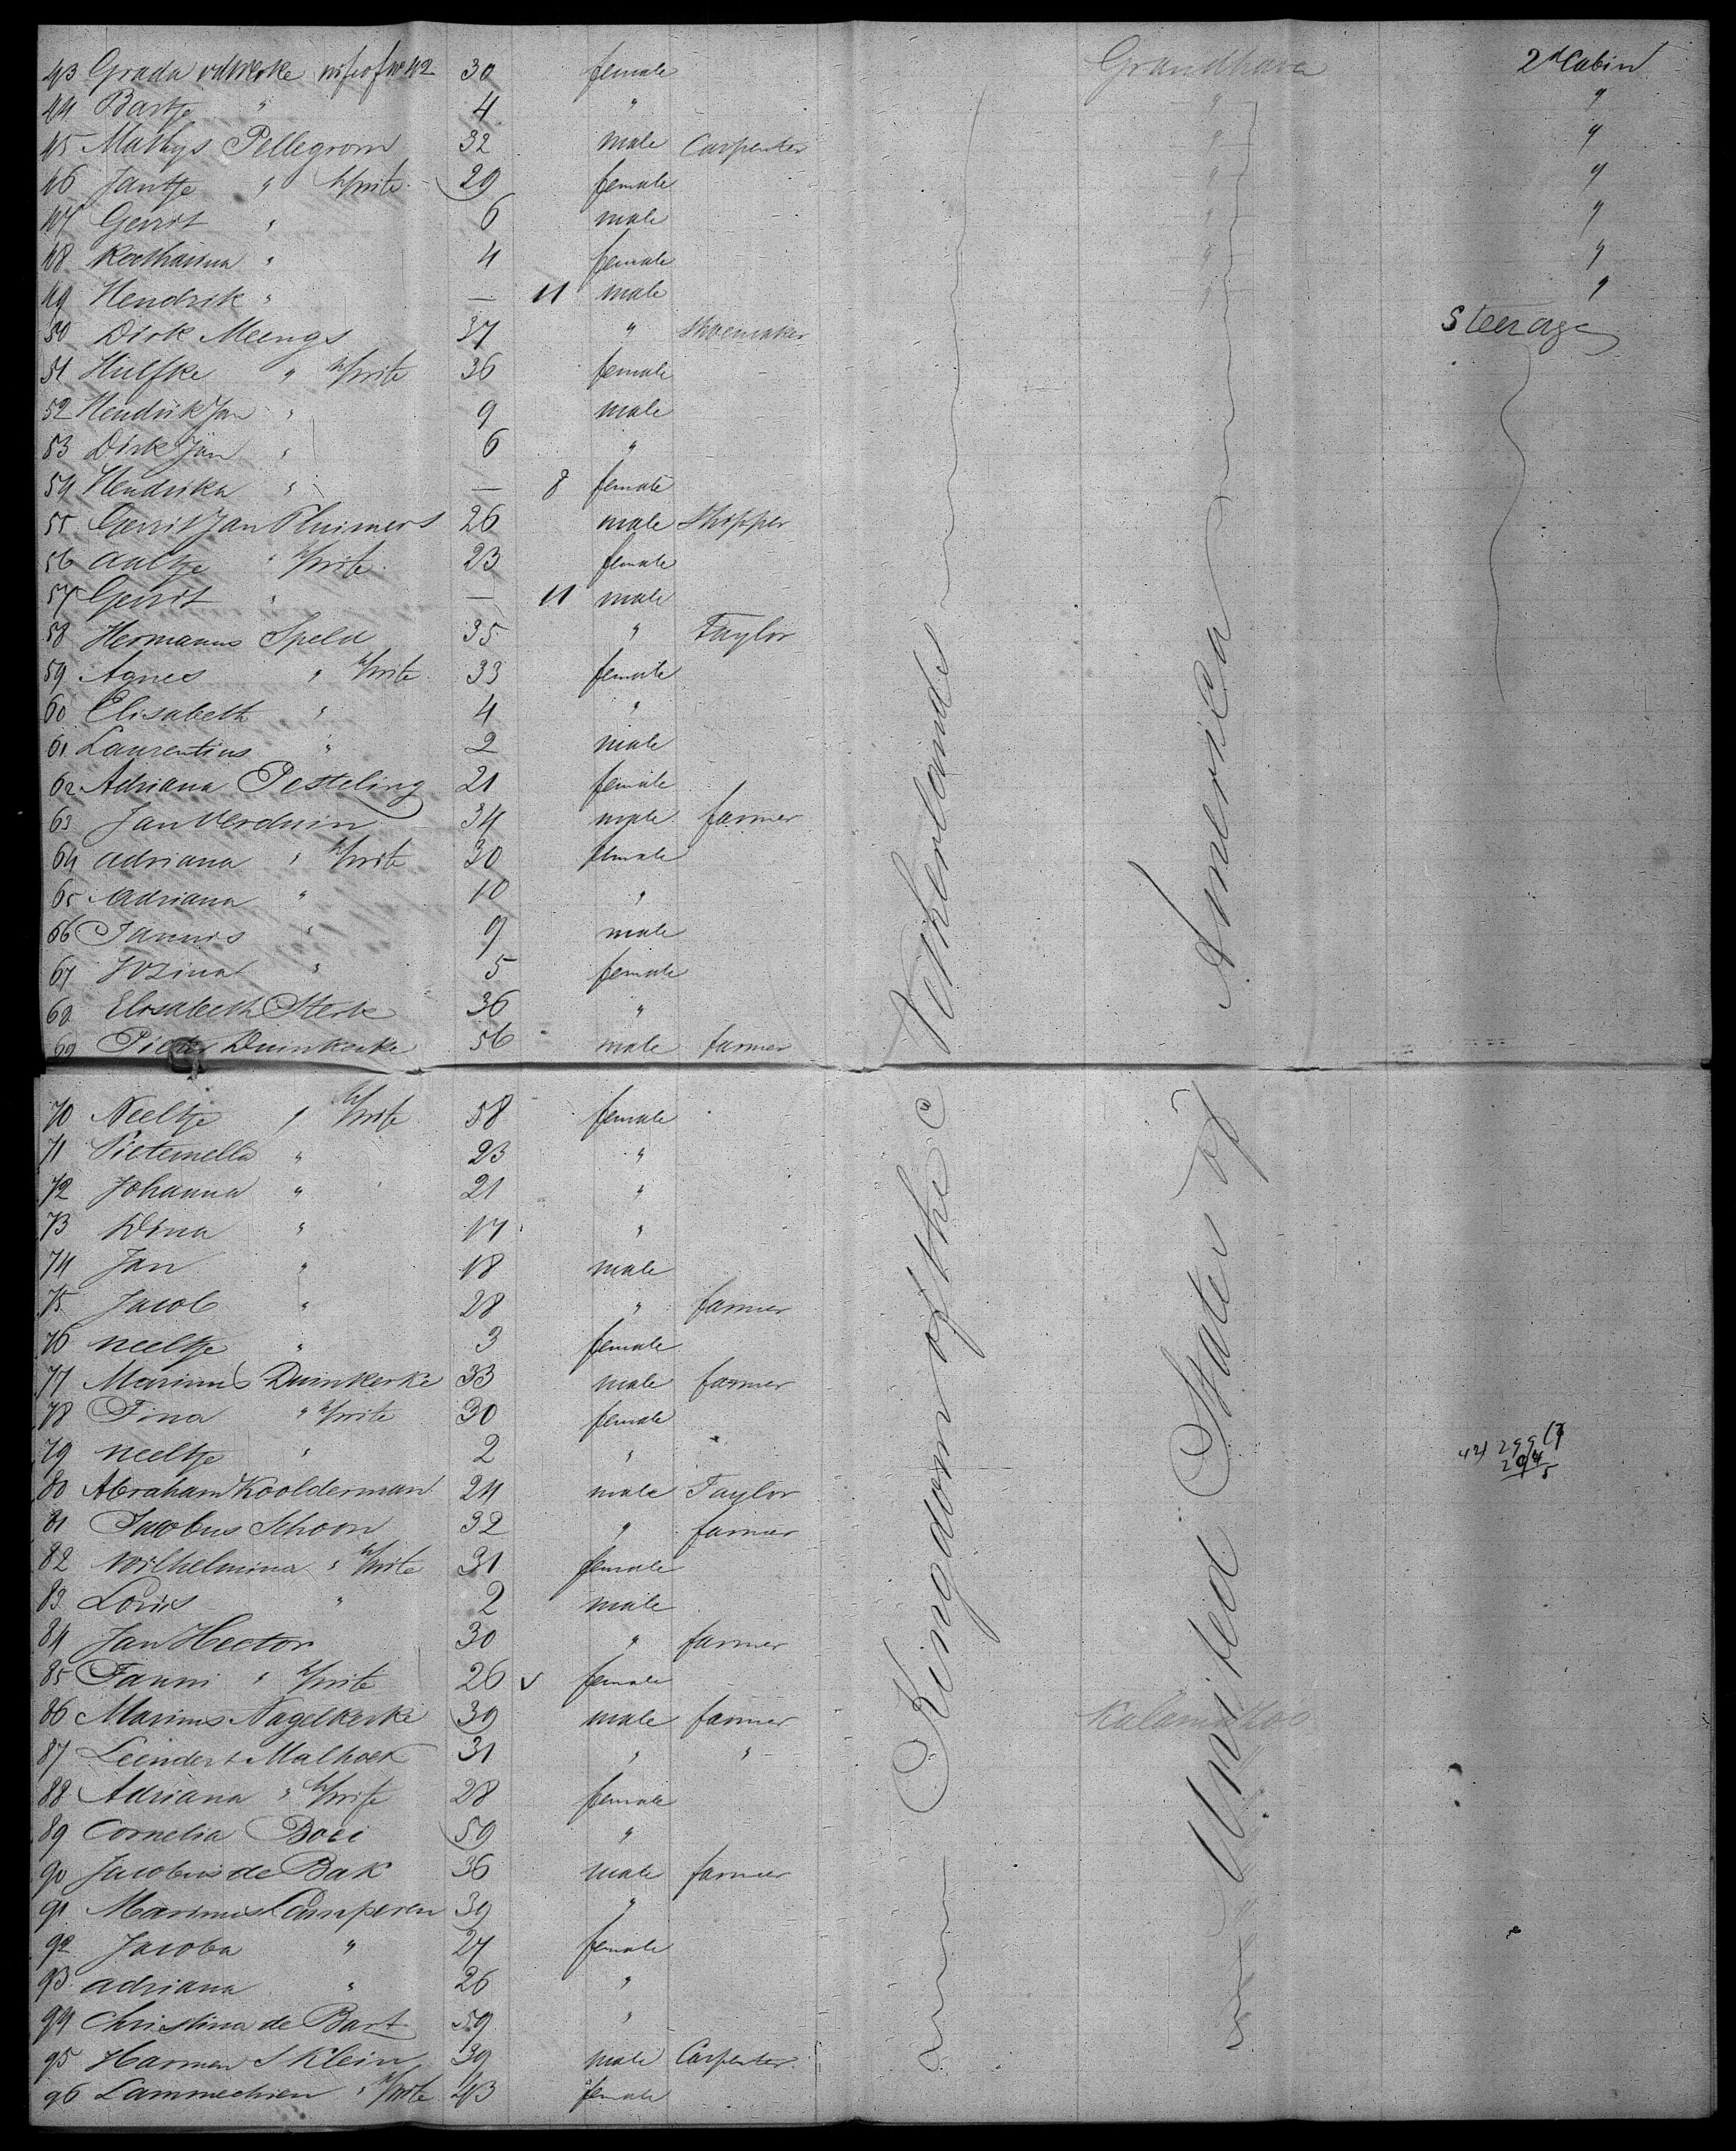 43 Grada vdWerke wife of no 42 30 female Grandhaven 2d Cabin
44 Bartje " 4 " " "
45 Mathys Pellegrom 32 male Carpenter " "
46 Jantje " h/wife 29 female " "
47 Gerrit " 6 male " "
48 " 4 female " "
49 Hendrik " — 11 male " "
50 Dirk Meengs 37 " Shoemaker Steerage
51 Hulfke " h/wife 36 female
52 Hendrik Jan " 9 male
53 Dirk Jan " 6 "
54 Hendrika " — 8 female
55 Gerrit Jan Pluimers 26 male Shipper
56 Aaltje " h/wife 23 female
57 Gerrit " — 11 male
58 Hermanus Speld 35 " Taylor
59 Agnes " h/wife 33 female
60 Elisabeth " 4 "
61 Laurentius " 2 male
62 Adriana Pesteling 21 female
63 Jan Verduin 34 male farmer
64 adriana " h/wife 30 female
65 Adriana " 10 "
66 Jannis " 9 male
67 Jozina " 5 female
68 Elisabeth Sterk 36 "
69 Pieter Duinkerke 56 male farmer
70 Neeltje " h/wife 58 female
71 Pieternella " 23 "
72 Johanna " 21 "
73 Dina " 17 "
74 Jan " 18 male
75 Jacob " 28 " farmer
76 neeltje " 3 female
77 Marinus Duinkerke 33 male farmer
78 Tina " h/wife 30 female
79 neeltje " 2 "
80 Abraham Koolderman 24 male Taylor
81 Jacobus Schoon 32 " farmer
82 Wilhelmina " h/wife 31 female
83 Louis " 2 male
84 Jan Hector 30 " farmer
85 Fanni " h/wife 26 female
86 Marinus Nagelkerke 39 male farmer Kalamazoo
87 Leendert Malhoek 31 " "
88 Adriana " h/wife 28 female
89 Cornelia Boei 59 "
90 Jacobus de Bak 36 male farmer
91 Marinus Camperen 39 "
92 Jacoba " 27 female
93 adriana " 26 "
94 Christina de Bart 59 "
95 Harmen S Klein 39 male Carpenter
96 Lammechien " h/wife 43 female
Kingdom of the Netherlands
United States of America
42) 299 (7
294
5